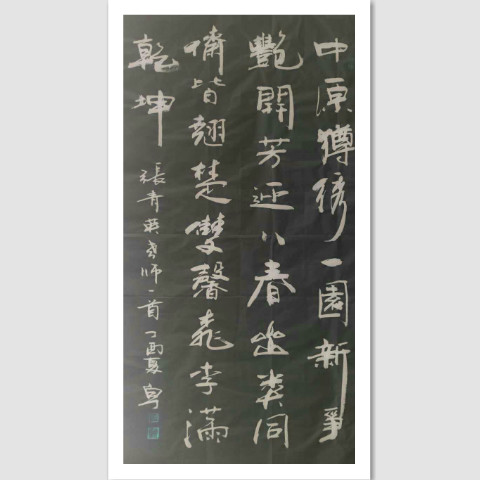 中原獨綉一園新爭
豔開芳迎八春出类同
儕皆翹楚雙馨桃李滿
乾坤
張青英老师一首丁酉夏